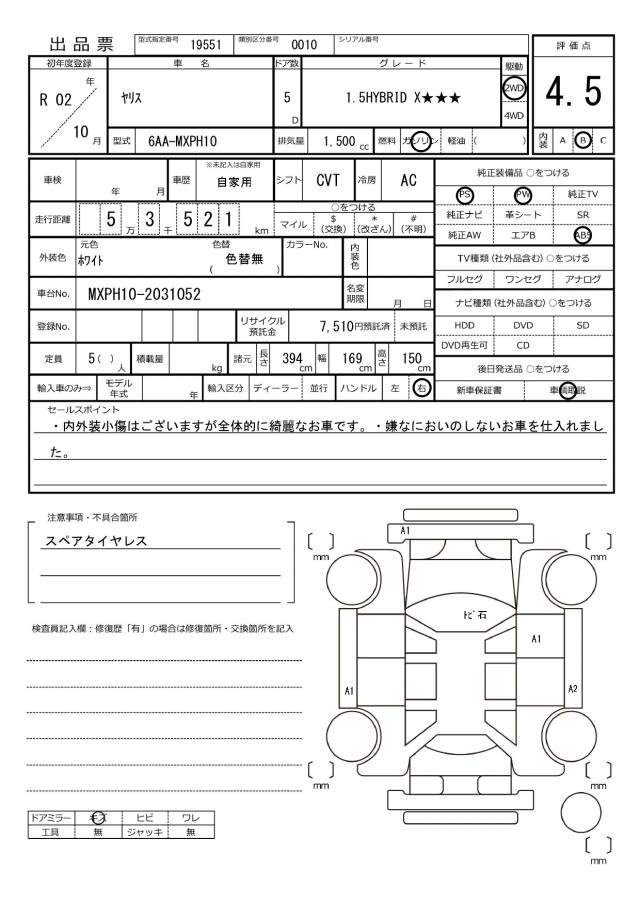 出品票
型式指定番号 19551 類別区分番号 0010 シリアル番号
評価点
4.5
内装 A B C
初年度登録 車名 ドア数 グレード 駆動
R 02 年 10 月
ヤリス 5 D 1.5HYBRID X★★★ 2WD
4WD
型式 6AA-MXPH10 排気量 1,500 cc 燃料 ガソリン 軽油 ( )
車検 年 月 車歴 ※未記入は自家用 自家用 シフト CVT 冷房 AC
走行距離 5 万 3 千 5 2 1 km
○をつける
マイル $(交換) *(改ざん) #(不明)
外装色 元色 ホワイト 色替 ( 色替無 ) カラーNo. 内装色
車台No. MXPH10-2031052 名変期限 月 日
登録No. リサイクル預託金 7,510円預託済 未預託
定員 5( )人 積載量 kg 諸元 長さ 394 cm 幅 169 cm 高さ 150 cm
輸入車のみ⇒ モデル年式 年 輸入区分 ディーラー 並行 ハンドル 左 右
純正装備品 ○をつける
PS PW 純正TV
純正ナビ 革シート SR
純正AW エアB ABS
TV種類(社外品含む)○をつける
フルセグ ワンセグ アナログ
ナビ種類(社外品含む)○をつける
HDD DVD SD
DVD再生可 CD
後日発送品 ○をつける
新車保証書 車輌取説
セールスポイント
・内外装小傷はございますが全体的に綺麗なお車です。・嫌なにおいのしないお車を仕入れまし
た。
注意事項・不具合箇所
スペアタイヤレス
検査員記入欄：修復歴「有」の場合は修復箇所・交換箇所を記入
A1
〔 〕 mm
〔 〕 mm
トビ石
A1
A1
A2
〔 〕 mm
〔 〕 mm
〔 〕 mm
ドアミラー キズ ヒビ ワレ
工具 無 ジャッキ 無